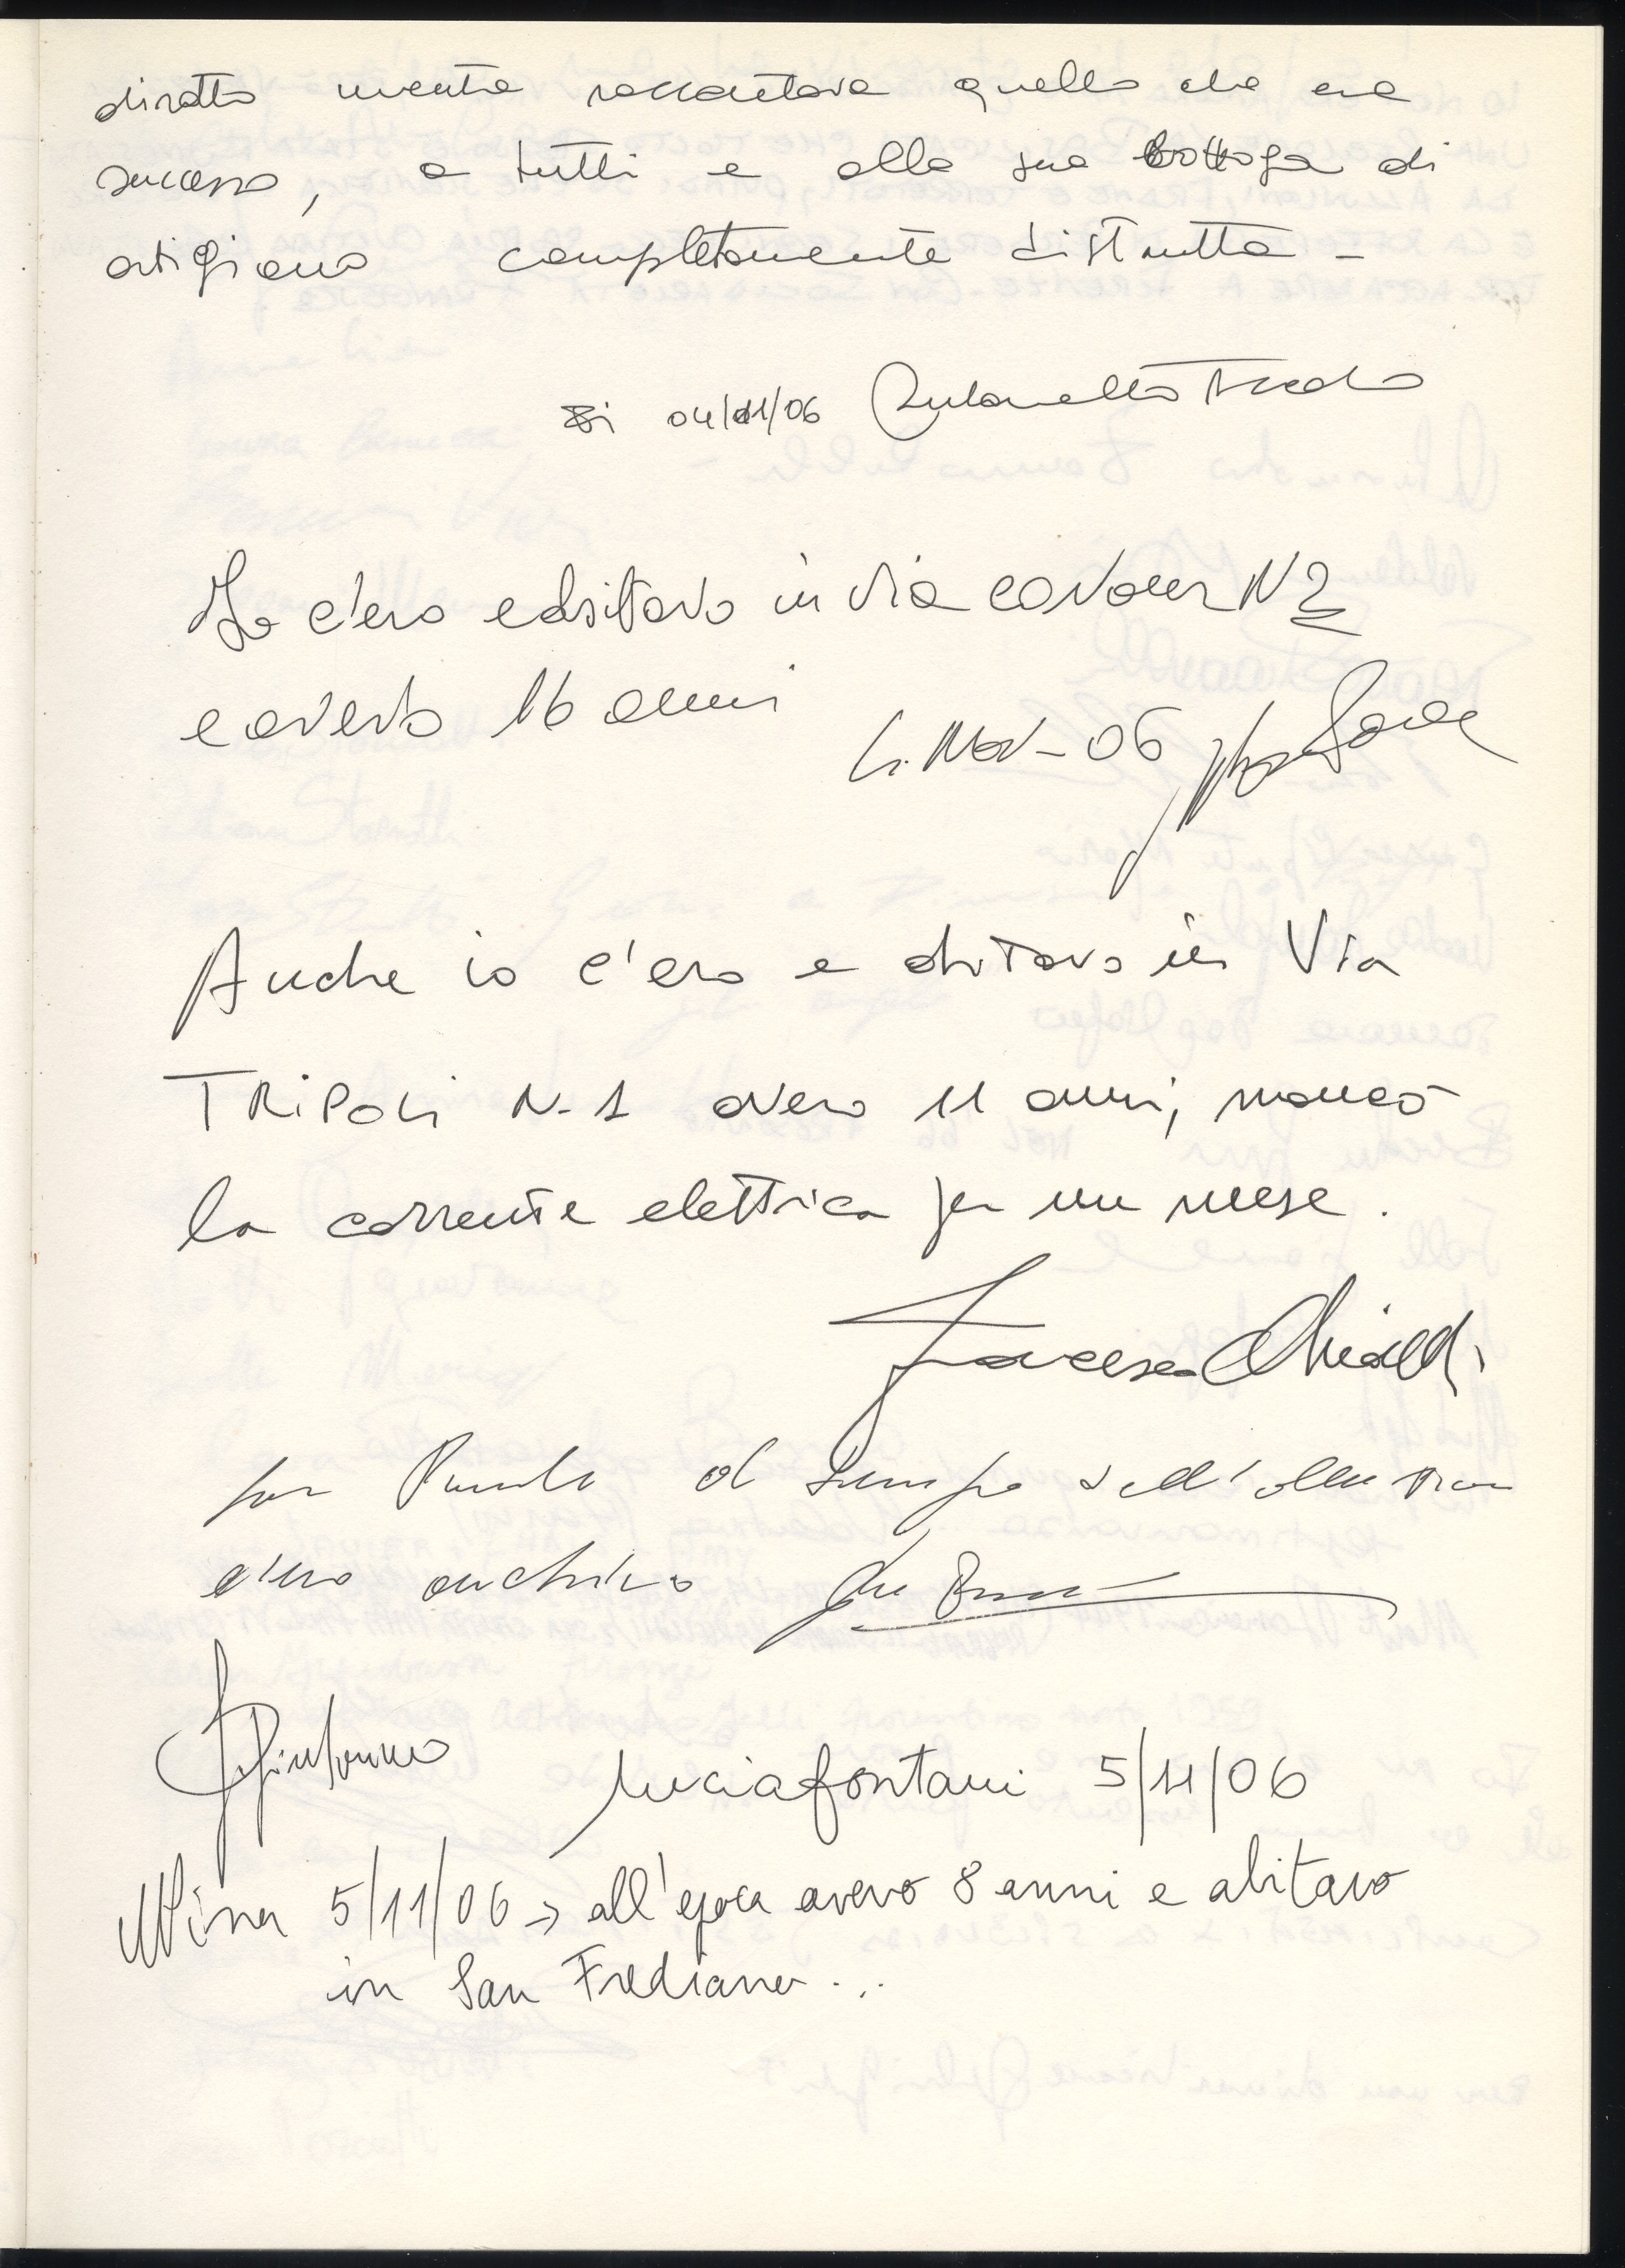 dirotto mentre raccontava quello che era
successo, a tutti e alla sua bottega di
artigiano completamente distrutta -
Fi 04/11/06 Antonella
Io c'ero e abitavo in via CAVOUR N2
e avevo 16 anni
4. Nov - 06
Anche io c'ero e abitavo in Via
TRIPOLI N. 1 avevo 11 anni, mancò
la corrente elettrica per un mese.
Francesca Ghiraldi
al tempo dell'alluvione
c'ero anch'io
Lucia Fontani 5/11/06
5/11/06 → all'epoca avevo 8 anni e abitavo
in San Frediano...